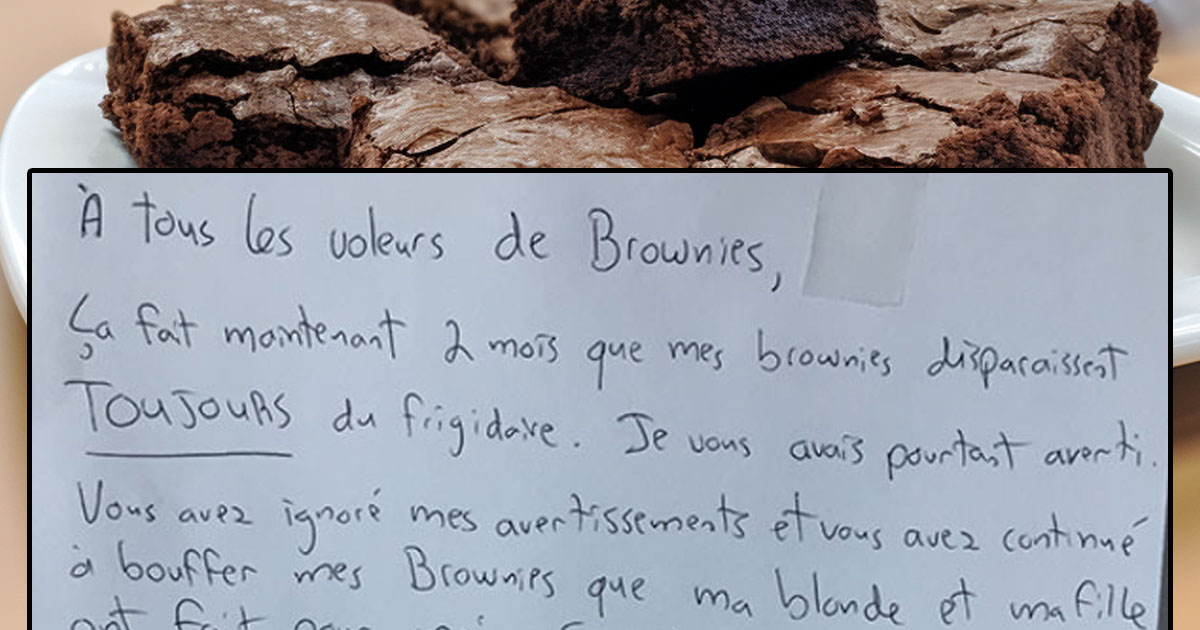 À tous les voleurs de Brownies,
Ça fait maintenant 2 mois que mes brownies disparaissent
TOUJOURS du frigidaire. Je vous avais pourtant averti.
Vous avez ignoré mes avertissements et vous avez continué
à bouffer mes Brownies que ma blonde et ma fille
ont fait pour